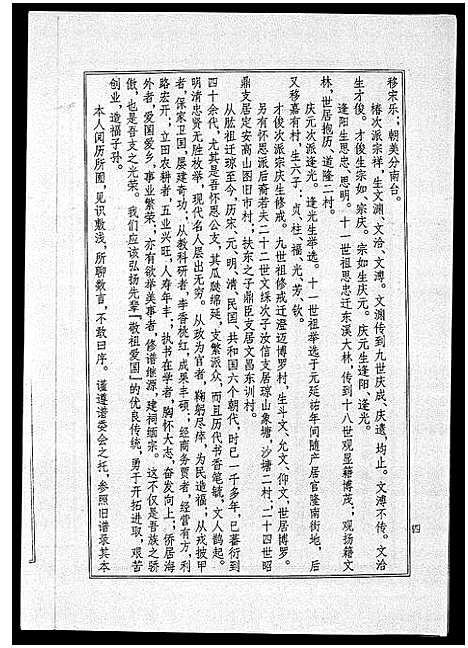 移宋乐；朝美分南台。
椿次派宗祥，生文渊、文洽、文溥。文渊传到九世庆成、庆遗，均止。文溥不传。文洽
生才俊。才俊生宗如、宗庆。宗如生庆元。庆元生逢阳、逢光。
逢阳生思忠、思明。十一世祖思忠迁东溪大林，传到十八世观显籍博茂；观扬籍文
林，世居抱历、道隆二村。
庆元次派逢光。逢光生举选。十一世祖举选于元延祐年间随产居官隆南街地，后
又移嘉有村，生六子：贞、柱、福、光、芳、钦。
才俊次派宗庆生修戒。九世祖修戒迁澄迈博罗村，生斗文、允文、仰文，世居博罗。
另有怀恩派后裔若夫二十二世文綵次子汝信支居琼山象塘，沙塘二村，二十四世昭
鼎支居定安高山图旧市村；扶东之子鼎臣支居文昌东训村。
从肱祖迁琼至今，历宋、元、明、清、民国、共和国六个朝代，时已一千多年，已蕃衍到
四十余代，尤其是吾怀恩公支，其瓜瓞绵延，支繁派众，而且历代书香笔毓，文人鹊起。
明清忠贤无胜枚举，现代名人层出无穷。从政为官者，鞠躬尽瘁，为民造福；从戎披甲
者，保家卫国，屡建奇功。从教科研者，李香棪红，成果丰硕；经商务贾者，经营有方，利
路宏开；立田农耕者，五业兴旺，人寿年丰；执书在学者，胸怀大志，奋发向上；侨居海
外者，爱国爱乡，事业繁荣，亦有欲举美事者，修谱继源，建祠缅宗。这不仅是吾族之骄
傲，也是吾支之光荣。我们应该弘扬先辈「敬祖爱国」的优良传统，勇于开拓进取，艰苦
创业，造福子孙。
本人阅历所囿，见识敷浅，所聊数言，不敢曰序。谨遵谱委会之托，参照旧谱录其本
四